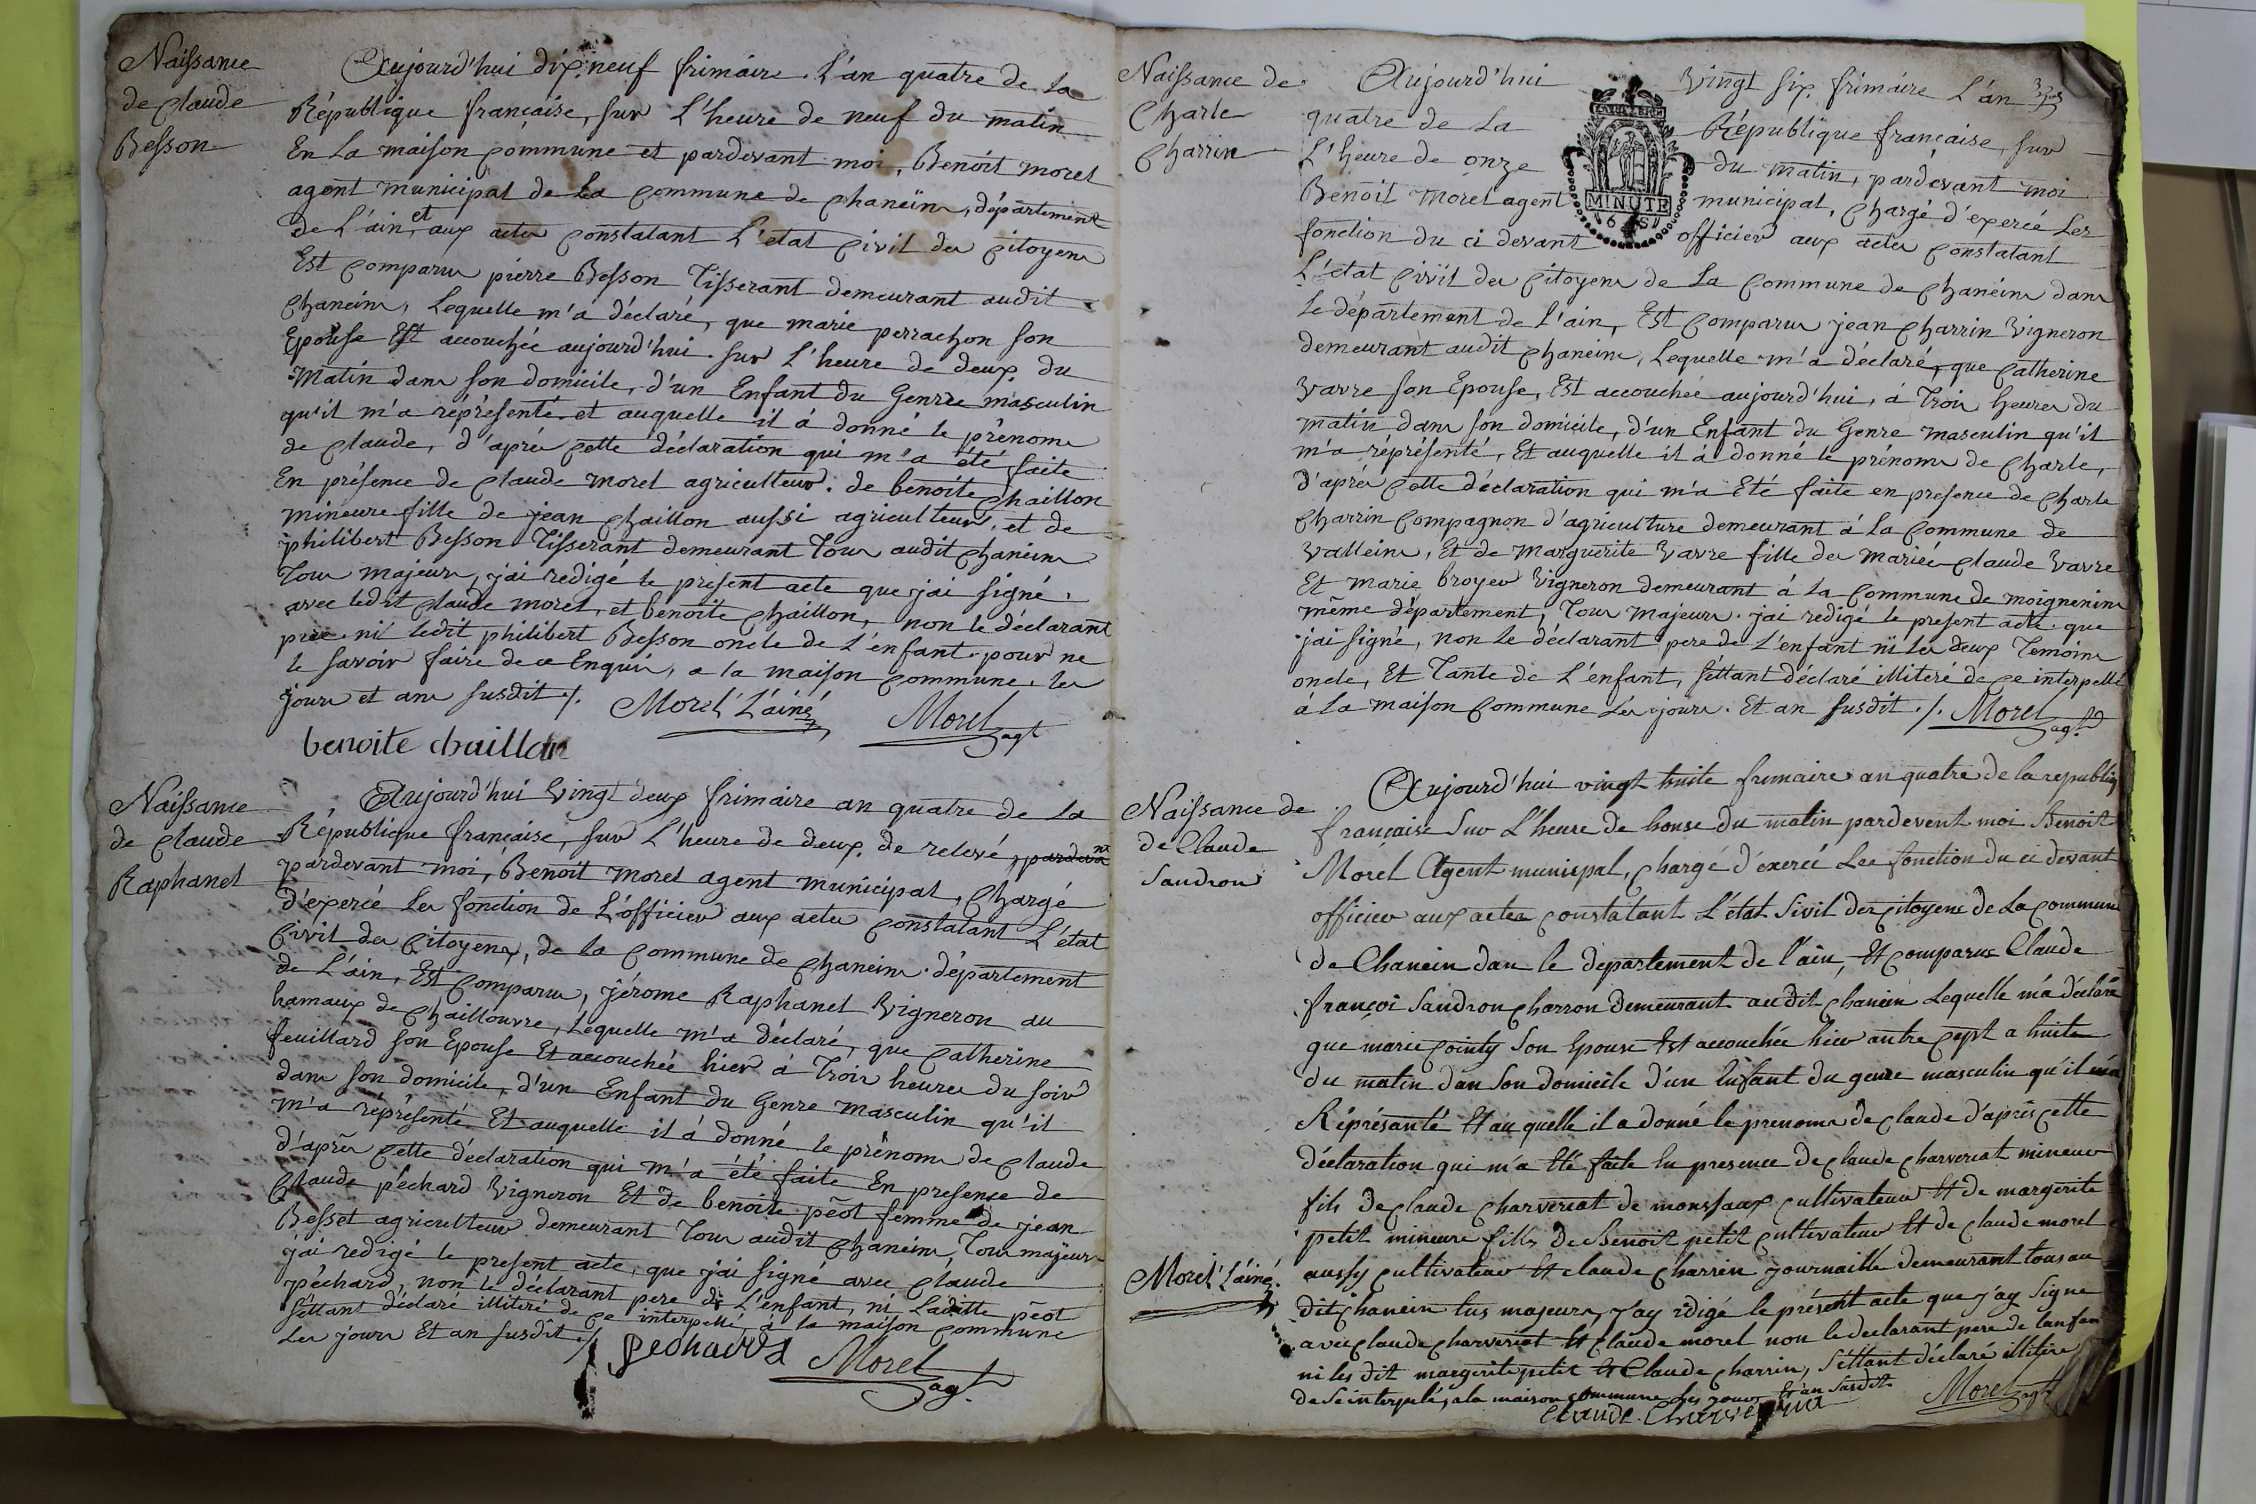 Naissance
de Claude
Besson
Aujourd'hui dix neuf frimaire. L'an quatre de La
République française, sur L'heure de neuf du matin
En La maison Commune et pardevant moi, Benoit morel
agent municipal de La Commune de chaneins, département
de L'ain, et aux actes Constatant L'état Civil des Citoyens
Est Comparus pierre Besson Tisserant demeurant audit
Chaneins, Lequelle m'a déclaré, que marie perrachon son
Epouse Est accouchée aujourd'hui. sur L'heure de deux du
matin dans son domicile, d'un Enfant du Genre masculin
qu'il m'a réprésenté et auquelle il à donné le prénoms
de Claude, d'après Cette déclaration qui m'a été faite
En présence de Claude morel agriculteur. de benoite Chaillon
mineure fille de jean Chaillon aussi agriculteur, et de
philibert Besson Tisserant demeurant Tous audit Chaneins
Tous majeurs, j'ai redigé le présent acte que j'ai signé.
avec ledit Claude morel, et benoite Chaillon, non le déclarant
père ni ledit philibert Besson oncle de L'enfant. pour ne
le savoir faire de ce Enquis, a la maison Commune. les
jours et ans susdit ./. Morel L'ainé Morel agt
benoite chaillon
Naissance
de Claude
Raphanel
Aujourd'hui Vingt deux frimaire an quatre de La
République française, sur L'heure de deux de relevé, pardevant
pardevant moi, Benoit morel agent municipal, Chargé
d'exercé Les fonction de L'officier aux actes Constatant L'état
Civil des Citoyens, de la Commune de Chaneins département
de L'ain, Est Comparus, jérome Raphanel Vigneron au
hamaux de Chaillouvre, Lequelle m'a déclaré, que Catherine
feuillard son Epouse Et accouchée hier à Trois heures du soir
dans son domicile, d'un Enfant du Genre masculin qu'il
m'a réprésenté Et auquelle il à donné le prénoms de Claude
d'après Cette déclaration qui m'a été faite En presence de
Claude péchard Vigneron Et de benoite péot femme de jean
Besset agriculteur demeurant Tous audit Chaneins, Tous majeurs
j'ai redigé le present acte, que j'ai signé avec Claude
péchard, non le déclarant pere de L'enfant, ni Laditte péot
S'éttant déclaré illiteré de Ce interpellé, à la maison Commune
Les jours Et an susdit ./. pechard Morel agt.
Naissance de
Charle
Charrin
Aujourd'hui Vingt six frimaire L'an
quatre de La République française, sur
L'heure de onze du matin, pardevant moi
Benoit Morel agent municipal, Chargé d'exercé Les
fonction du ci devant officier aux actes Constatant
L'état Civil des Citoyens de La Commune de Chaneins dans
Le département de L'ain, Est Comparus jean Charrin Vigneron
demeurant audit Chaneins, Lequelle m'a déclaré, que Catherine
Varre son Epouse, Est accouchée aujourd'hui, à Trois heures du
matin dans son domicile, d'un Enfant du Genre masculin qu'il
m'a réprésenté, Et auquelle il à donné le prénoms de Charle,
d'après Cette déclaration qui m'a Eté faite en presence de Charle
Charrin Compagnon d'agriculture demeurant à La Commune de
Valleins, Et de Marguerite Varre fille des mariés Claude Varre
Et marie broyer Vigneron demeurant à la Commune de moignenins
même département, Tous majeurs. j'ai redigé le present acte que
j'ai signé, non Le déclarant pere de L'enfant ni Les deux Temoins
oncle, Et Tante de L'enfant, s'éttant déclaré illiteré de Ce interpellé
à La maison Commune Les jours. Et an susdit ./. Morel agt
MINUTE
Naissance de
de Claude
Sandron
Aujourd'hui vingt huite frimaire an quatre de la republiq
francaise Sur L'heure de honse du matin pardevent moi Benoit
Morel Agent municpal, Chargé d'exercé Les fonction du ci devant
officier aux actes Constatant L'état Sivil des Citoyens de La Commune
de Chanein dans le departement de l'ain, Et Comparus Claude
françoi Sandron Charron demeurant audit Chanein Lequelle m'a déclaré
que marie Cointy Son Epouse Est accouchée hier antre Cept a huite
du matin dan Son domicile d'un Enfant du genre masculin qu'il m'a
Réprésanté Et auquelle il a donné le prenoms de Claude d'après Cette
déclaration qui m'a Eté faite En presence de Claude Charveriat mineur
fils de Claude Charveriat de monsfaux Cultivateur Et de margerite
petit mineure fille de Benoit petit Cultivateur Et de Claude morel
aussy Cultivateur Et Claude Charrin journaille demeurant tous au
dit Chanein tus majeurs, j'ay rdigé le présent acte que j'ay Signe
avec Claude Charveriat Et Claude morel non le declarant pere de lanfan
ni les dit margerite petit Et Claude Charrin, S'éttant déclaré illitéré
de Se interpelés, a la maison Commune Les jour Et an Susdit.
Morel L'ainé.
Claude Charveriat Morel agt